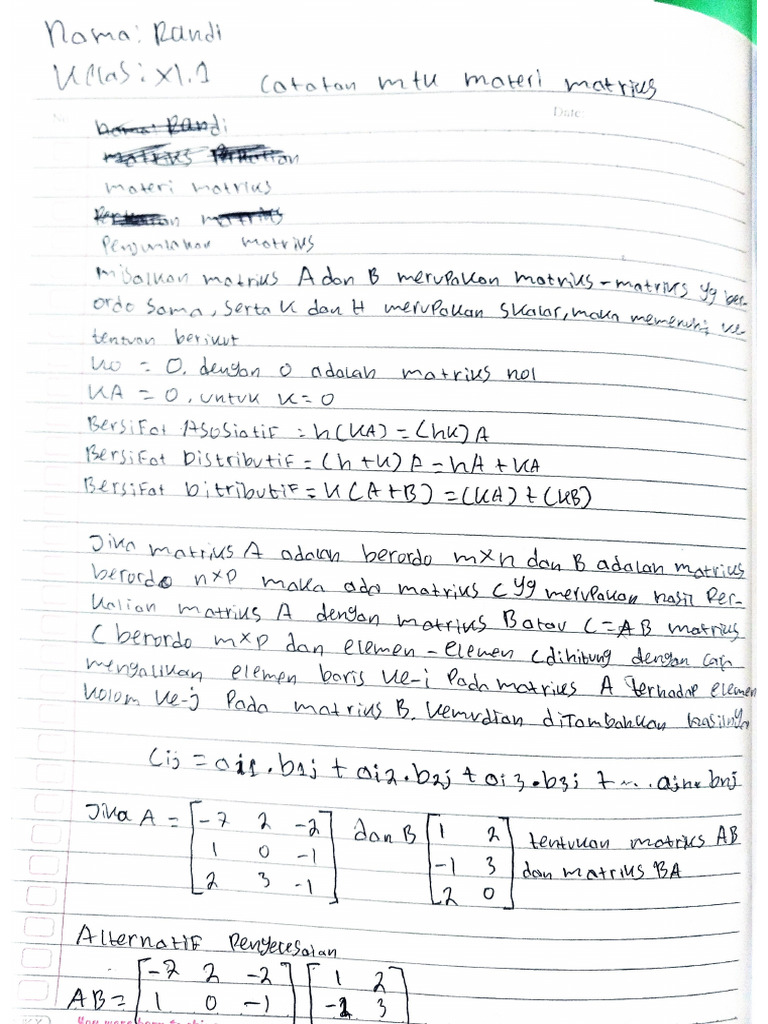 Nama: Randi
Kelas: XI.1
Catatan mtk materi matriks
Date:
Nama: Randi
materi matriks
Penjumlahan matriks
Misalkan matriks A dan B merupakan matriks-matriks yg ber-
ordo sama, serta k dan H merupakan skalar, maka memenuhi ke
tentuan berikut
k0 = 0. dengan 0 adalah matriks nol
kA = 0, untuk k = 0
Bersifat Asosiatif = h(kA) = (hk)A
Bersifat Distributif = (h+k) A = hA + kA
Bersifat bitributif = k(A+B) = (kA) + (kB)
Jika matriks A adalah berordo m×n dan B adalah matriks
berordo n×p maka ada matriks C yg merupakan hasil Per-
kalian matriks A dengan matriks B atau C = AB matriks
C berordo m×p dan elemen-elemen C dihitung dengan cara
mengalikan elemen baris ke-i Pada matriks A terhadap elemen
kolom ke-j Pada matriks B. kemudian diTambahkan hasilnya
Cij = ai1.b1j + ai2.b2j + ai3.b3j + ... ain. bnj
Jika A = [-2 2 -2
1 0 -1
2 3 -1] dan B [1 2
-1 3
2 0] tentukan matriks AB
dan matriks BA
Alternatif Penyelesaian
AB = [-2 2 -2
1 0 -1] [1 2
-1 3]